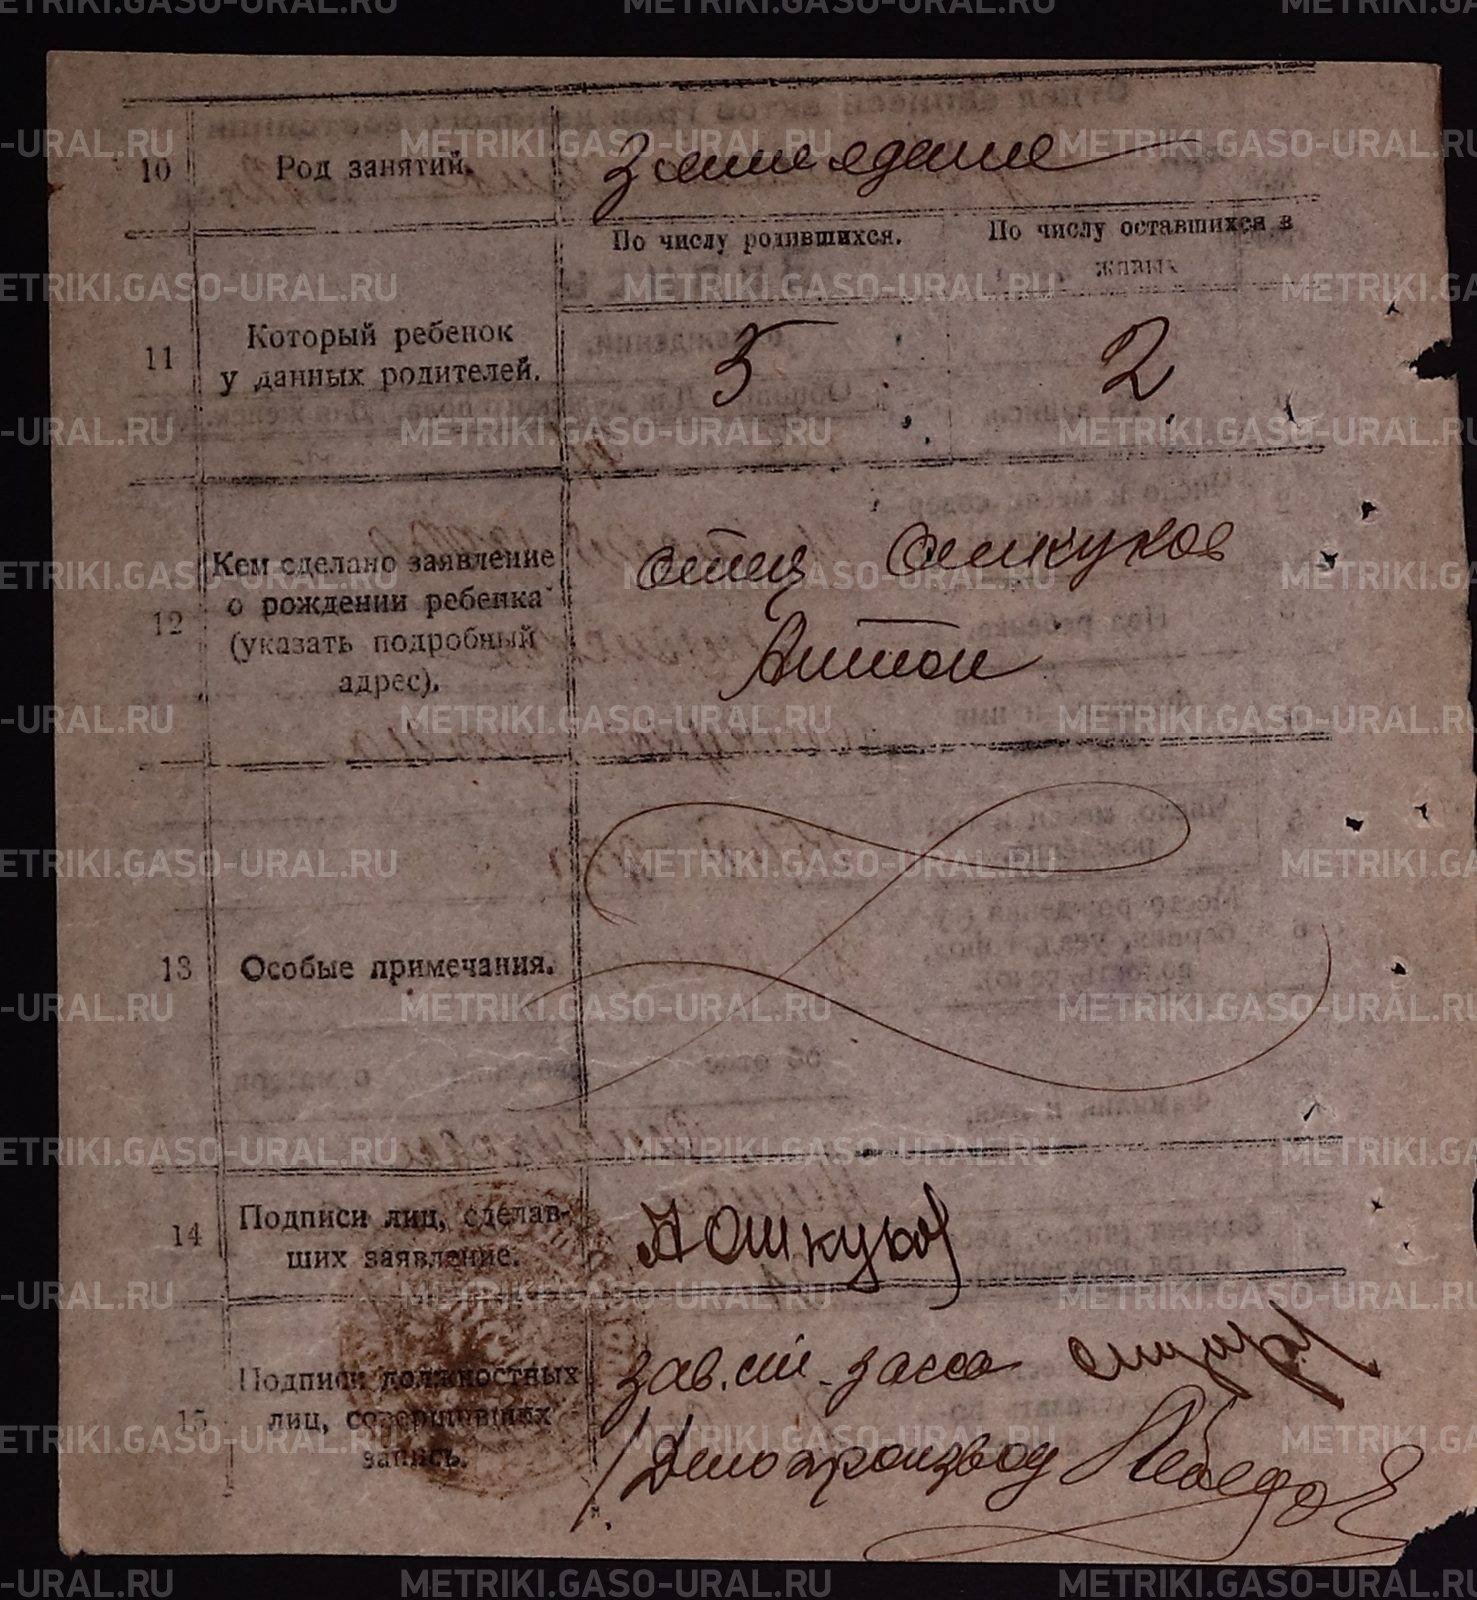 10 Род занятий. Земледелие
По числу родившихся. По числу оставшихся в
живых
11 Который ребенок
у данных родителей. 5 2
12 Кем сделано заявление
о рождении ребенка
(указать подробный
адрес).
отец Ошкуков
Антон
13 Особые примечания.
14 Подписи лиц, сделав-
ших заявление.
А Ошкуков
15 Подписи должностных
лиц, совершивших
запись.
зав. загса
Делопроизвод Лебедев
METRIKI.GASO-URAL.RU